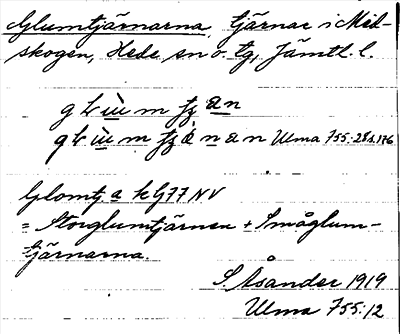 Glumtjärnarna, tjärnar i Mid-
skogen, Hede sn o. tg, Jämtl. l.
Ulma 755:28 s.176
Glomtj a k G77 NV
= Storglumtjärnen + Småglum-
tjärnarna.
S Åsander 1919
Ulma 755:12